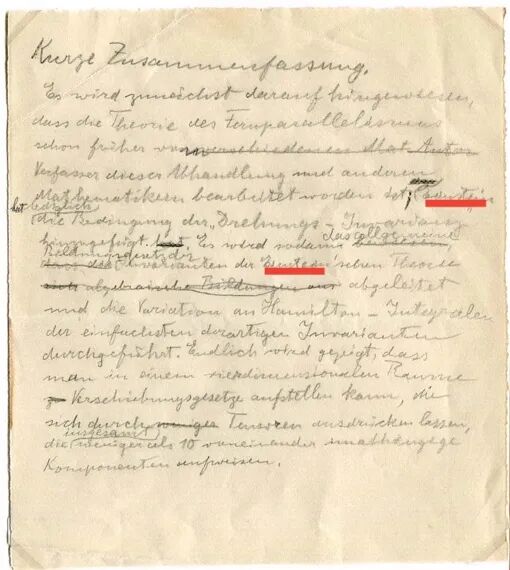 Kurze Zusammenfassung.
Es wird zunächst darauf hingewiesen,
dass die Theorie des Fernparallelismus
schon früher vom verschiedenen Mat. Autor
Verfasser dieser Abhandlung und anderen
Mathematikern bearbeitet worden ist,
hat lediglich
die Bedingung der Drehungs-Invarianz
hinzugefügt. Es wird sodann das allgemeine
Bildungsgesetz der
Invarianten der 'schen Theorie
algebraische Bildungen abgeleitet
und die Variation an Hamilton-Integralen
der einfachsten derartigen Invarianten
durchgeführt. Endlich wird gezeigt, dass
man in einem vierdimensionalen Raume
Verschiebungsgesetze aufstellen kann, die
sich durch weniger Tensoren ausdrücken lassen,
insgesamt
die weniger als 10 voneinander unabhängige
Komponenten aufweisen.